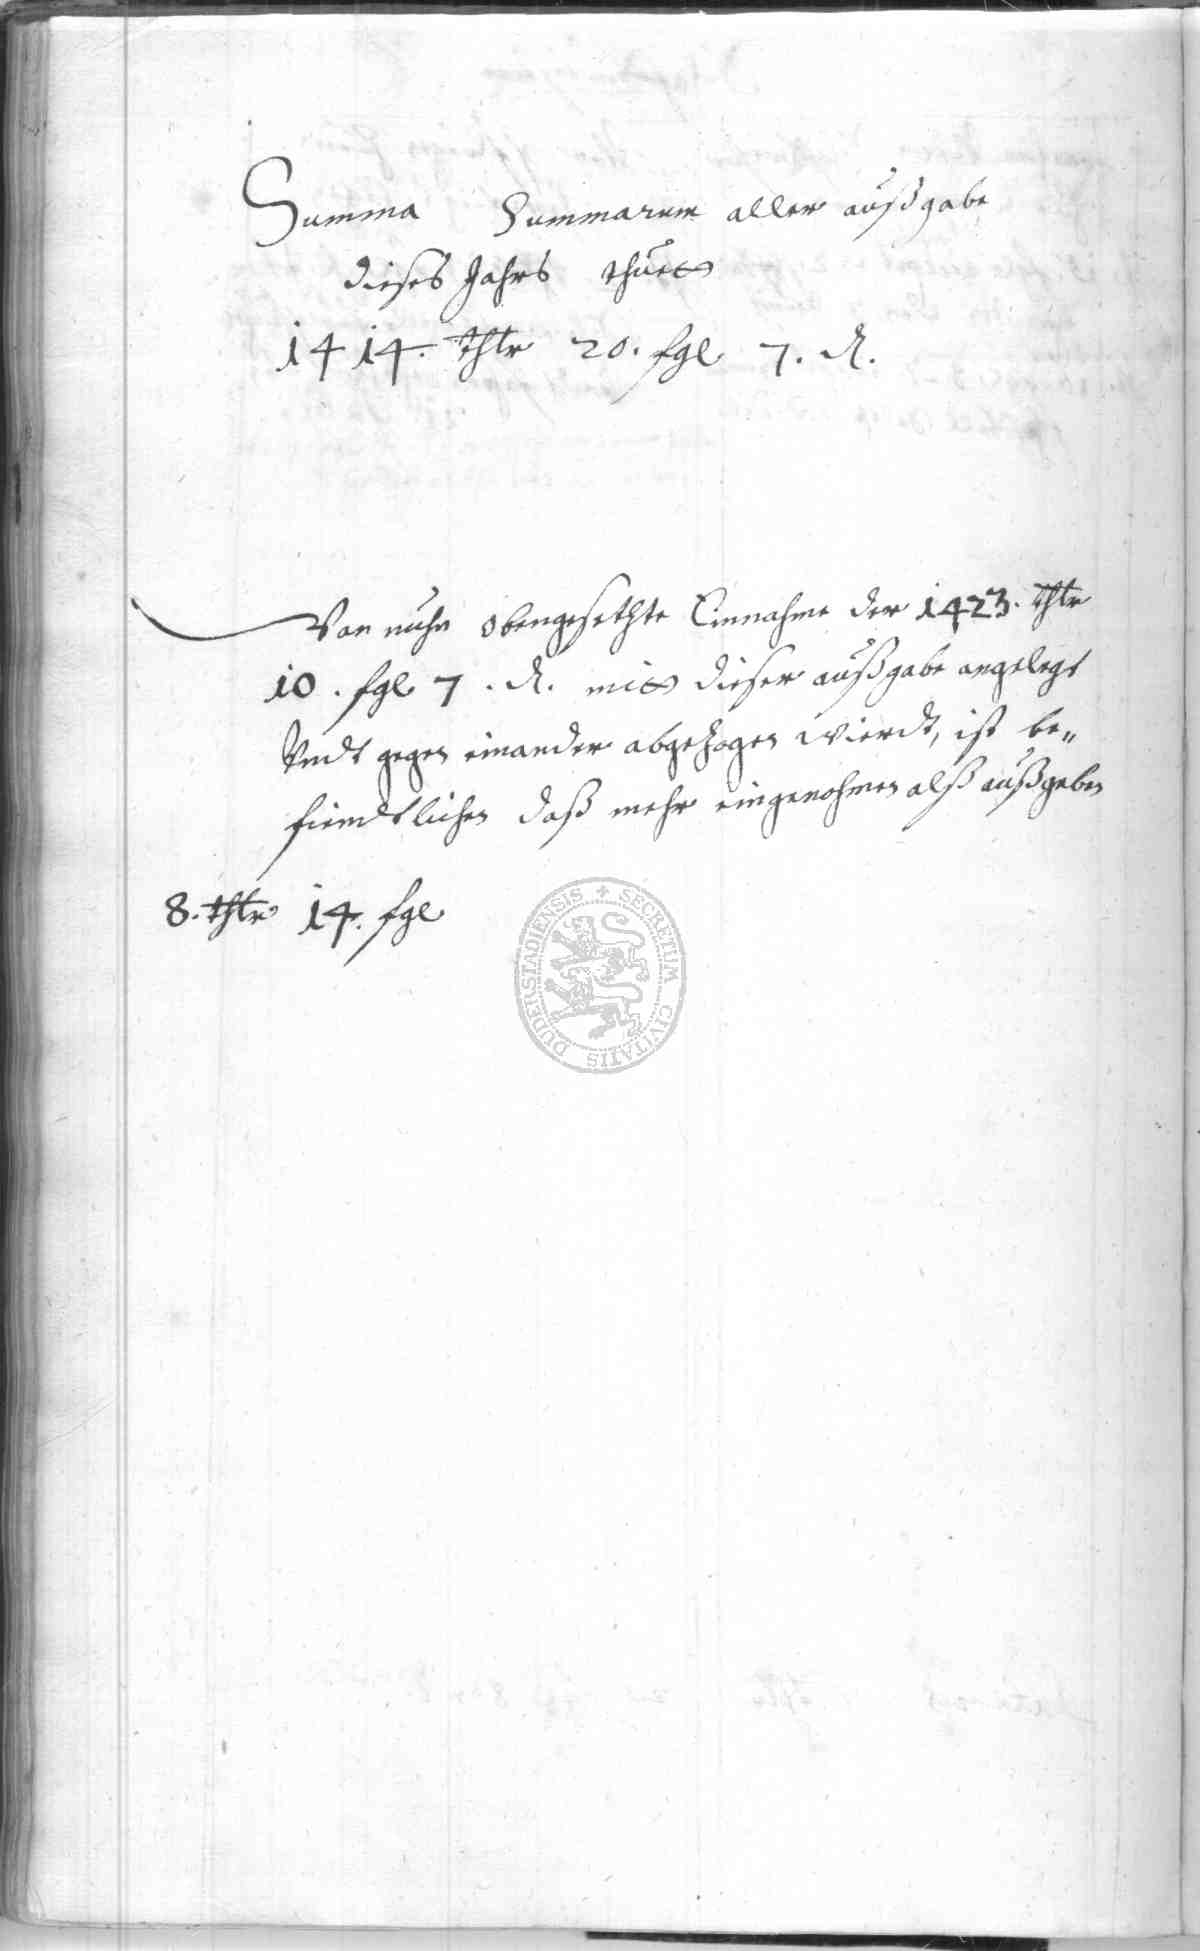 Summa Summarum aller außgabe
dieses Jahrs thuet
1414. thlr 20. sgl 7. d.
Wan nuhn obengesethzte Einnahme der 1423. thlr
10. sgl 7. d. mit dieser außgabe angelegt
Vndt gegen einander abgezogen wierdt, ist be„
fiendtlichen daß mehr eingenohmen alß außgeben
8. thlr 14. sgl
SECRETUM CIVITATIS DUDERSTADIENSIS